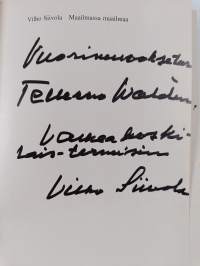 Vilho Siivola Maailmassa maailmaa
Vuorineuvokselle
Tellervo Waldén,
Valkeakoski-
lais-terveisin
Vilho Siivola